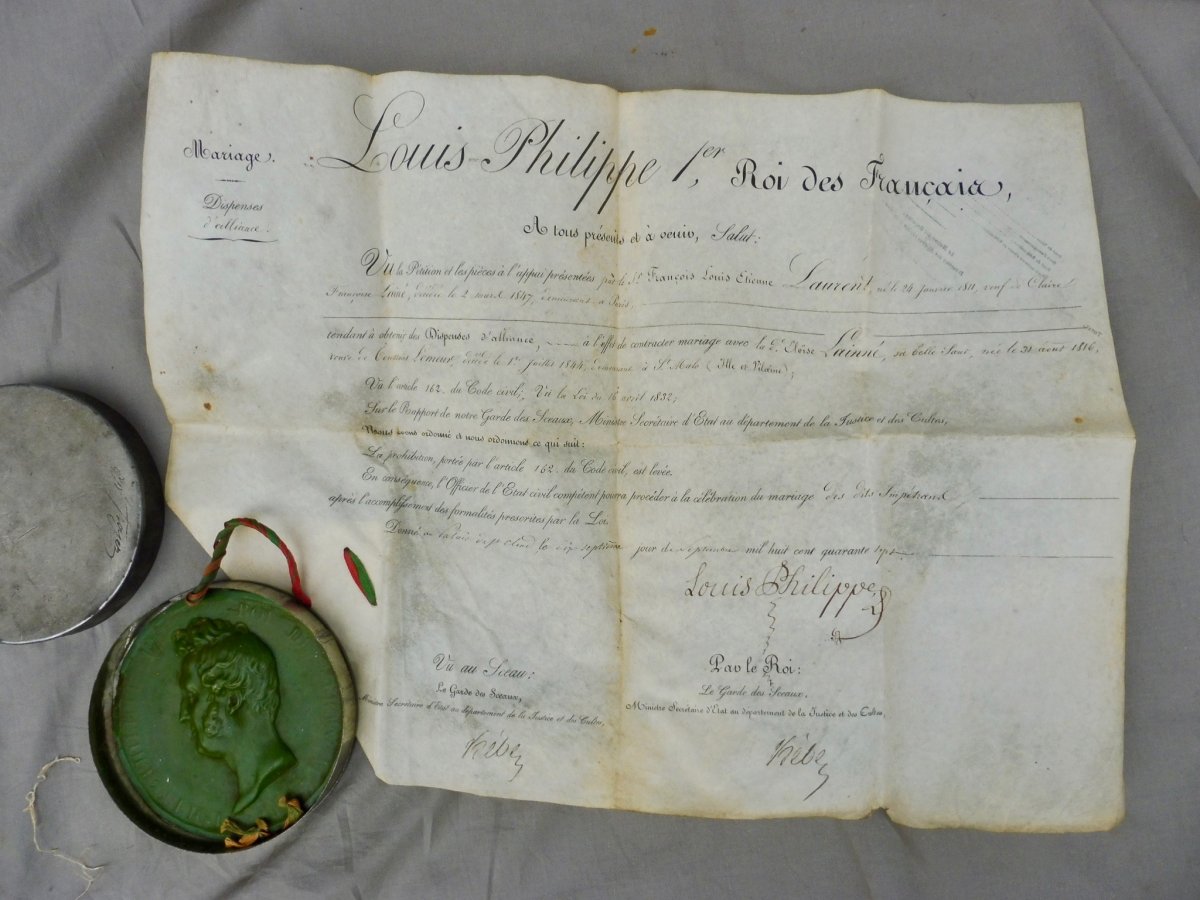 Mariage.
Dispenses
d'alliance.
Louis-Philippe 1er, Roi des Français,
A tous présents et à venir, Salut:
Vu la Pétition et les pièces à l'appui présentées par le Sr. François Louis Etienne Laurent, né le 24 janvier 1811, veuf de Claire
Françoise Lainné, décédée le 2 mars 1847, demeurant à Paris,
tendant à obtenir des Dispenses d'alliance, à l'effet de contracter mariage avec la De. Eloïse Lainné, sa belle Sœur, née le 31 août 1816,
veuve de Lemeur, décédé le 1er Juillet 1844, demeurant à St. Malo (Ille et Vilaine);
Vu l'article 162 du Code civil; Vu la Loi du 16 avril 1832;
Sur le Rapport de notre Garde des Sceaux, Ministre Secrétaire d'Etat au département de la Justice et des Cultes,
Nous avons ordonné et nous ordonnons ce qui suit:
La prohibition, portée par l'article 162 du Code civil, est levée.
En conséquence, l'Officier de l'Etat civil compétent pourra procéder à la célébration du mariage des dits Impétrans
après l'accomplissement des formalités prescrites par la Loi.
Donné au palais de St. Cloud le dix septième jour de Septembre mil huit cent quarante sept.
Louis Philippe
Vu au Sceau:
Le Garde des Sceaux,
Ministre Secrétaire d'Etat au département de la Justice et des Cultes,
Hébe
Par le Roi:
Le Garde des Sceaux,
Ministre Secrétaire d'Etat au département de la Justice et des Cultes,
Hébe